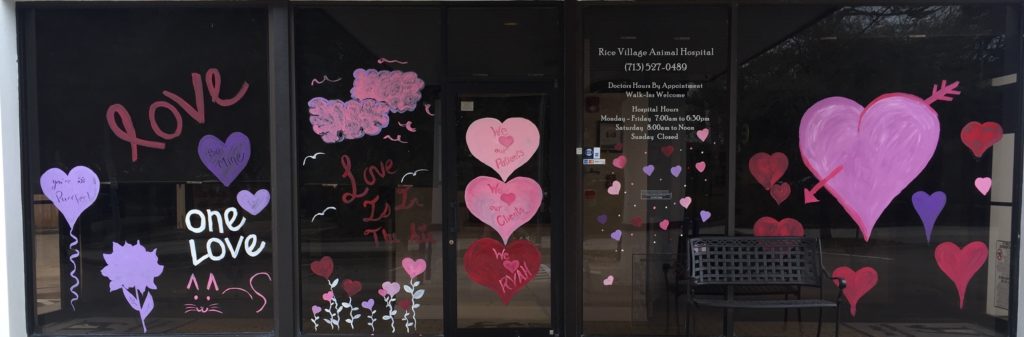 love
Be
Mine
you're
Purrfect
one
LOVE
Love
Is In
The Air
We
our
Patients
We
our
Clients
We
RVAH
Rice Village Animal Hospital
(713) 527-0489
Doctors Hours By Appointment
Walk-Ins Welcome
Hospital Hours
Monday - Friday 7:00am to 6:30pm
Saturday 8:00am to Noon
Sunday Closed